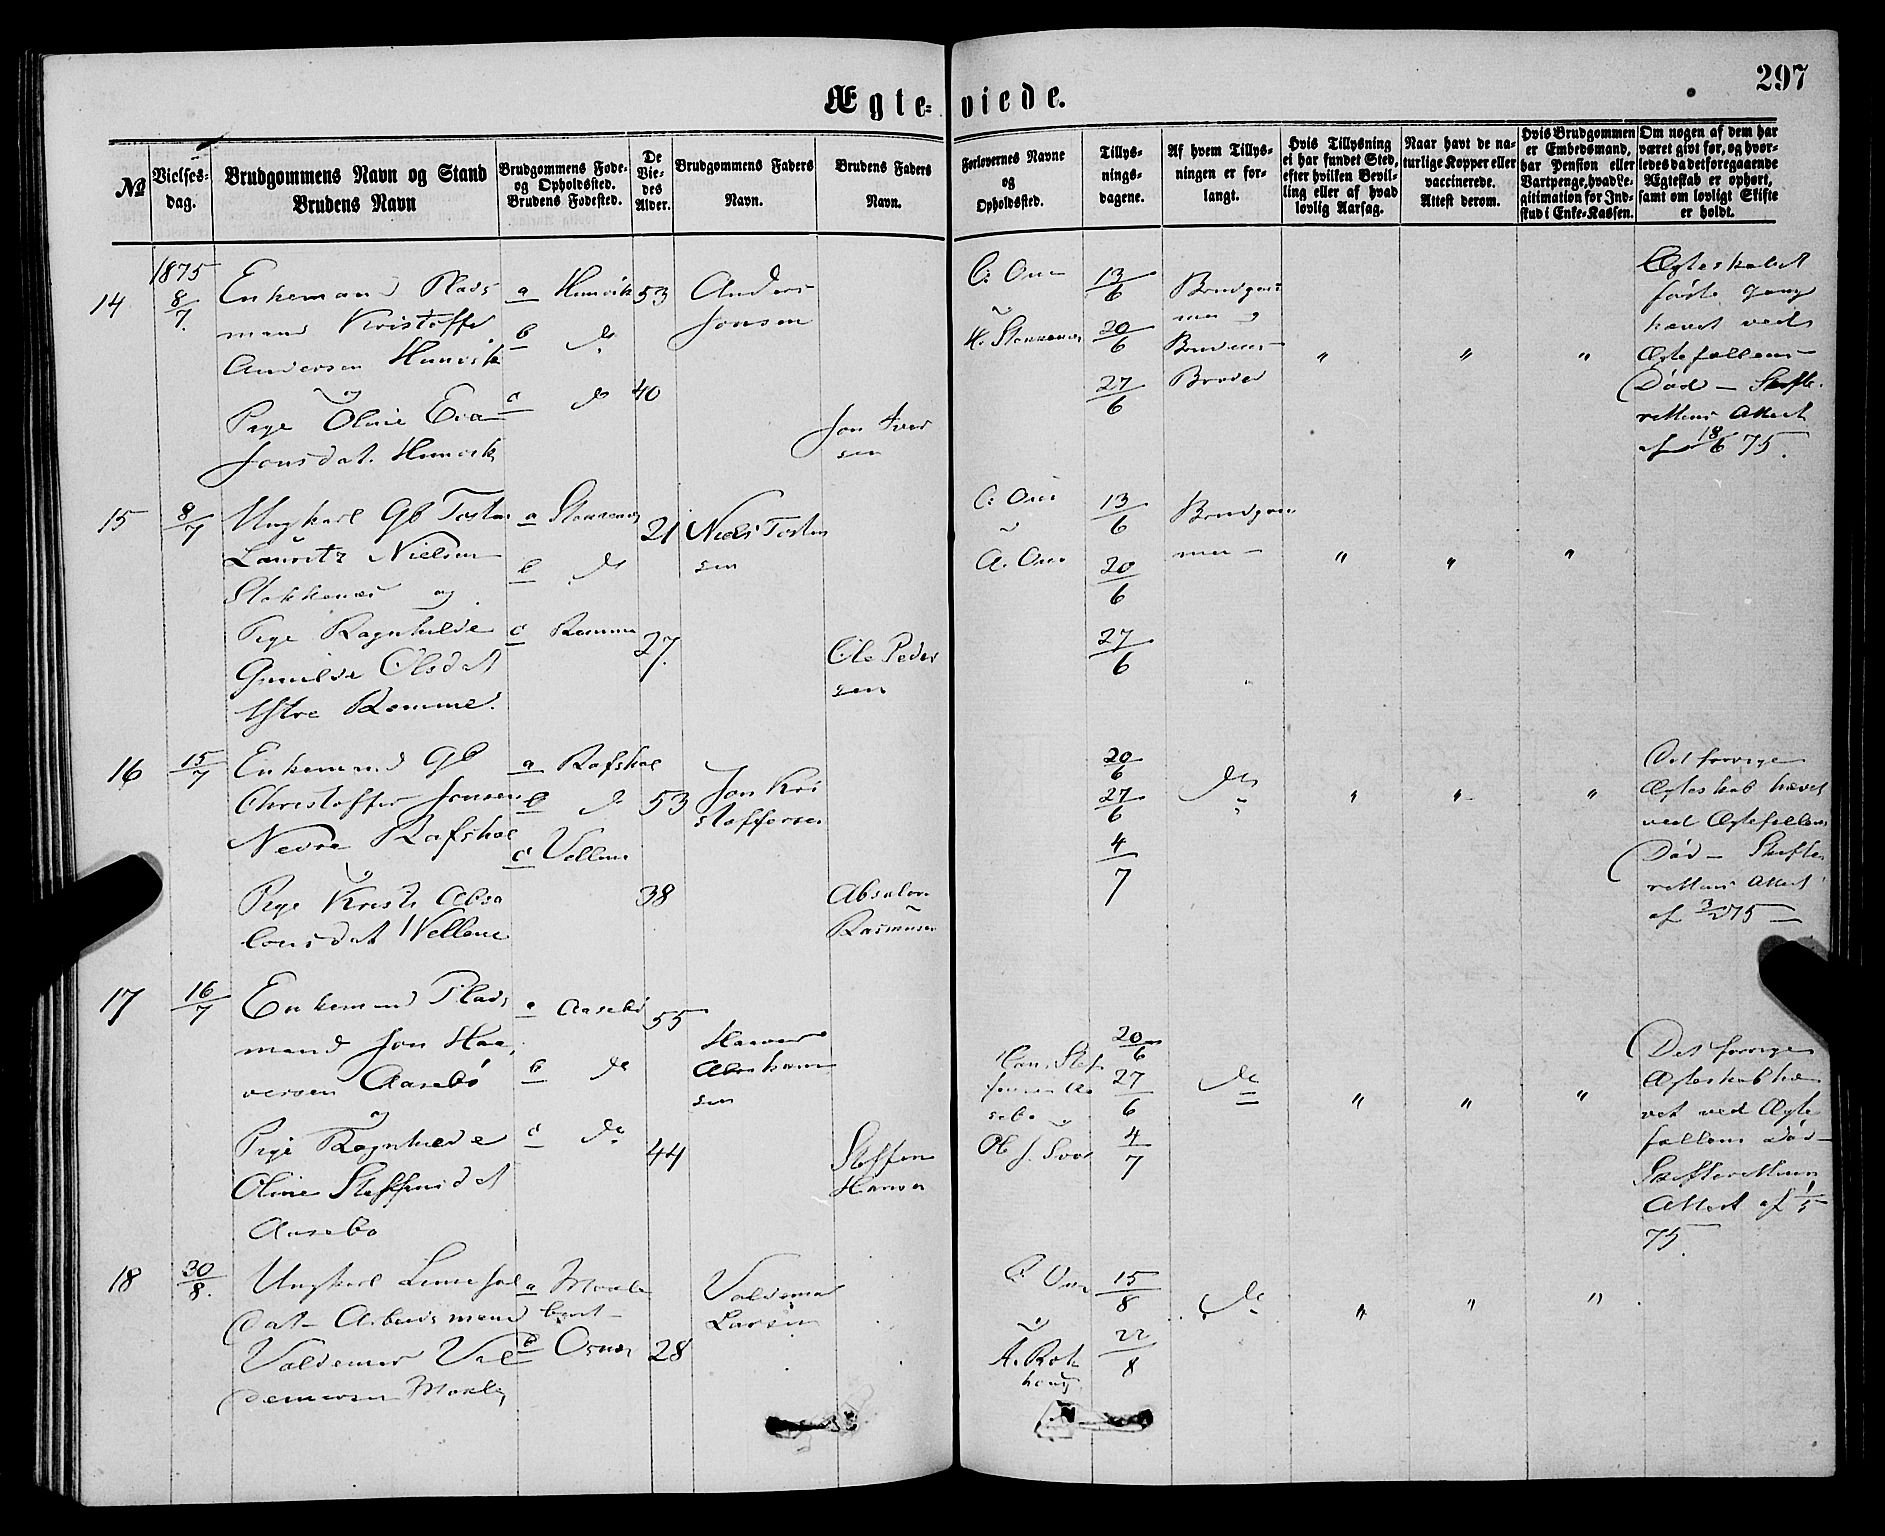 297
Ægte- viede.
№
Vielses-
dag.
Brudgommens Navn og Stand
Brudens Navn
Brudgommens Føde-
og Opholdssted.
Brudens Fødested.
De
Vie-
des
Alder.
Brudgommens Faders
Navn.
Brudens Faders
Navn.
Forlovernes Navne
og
Opholdssted.
Tillys-
nings-
dagene.
Af hvem Tillys-
ningen er for-
langt.
Hvis Tillysning
ei har fundet Sted,
efter hvilken Bevil-
ling eller af hvad
lovlig Aarsag.
Naar havt de na-
turlige Kopper eller
vaccinerede.
Attest derom.
Hvis Brudgommen
er Embedsmand,
har Pension eller
Vartpenge, hvad Le-
gitimation for Ind-
skud i Enke-Kassen.
Om nogen af dem har
været givt før, og hvor-
ledes da det foregaaende
Ægteskab er ophørt,
samt om lovligt Skifte
er holdt.
1875
14
8/7
Enkemand Plads
mand Kristoffer
Andersen Hunvik
og
Pige Oline Eva
Jonsdat. Hunvik
a Hunvik
b do
c do
53
40
Anders
Jonsen
Jon Iver
sen
13/6
20/6
27/6
Brudgom
men og
Brudens
Broder
" " "
Ægteskabet
første Gang
hævet ved
Ægtefællens
Død - Skifte-
rettens Attest
af 18/6 75.
15
8/7
Ungkarl Gb Tosten
Lauritz Nielsen
Stokkenes og
Pige Ragnhilde
Gunilda Olsdat
Ystre Remme.
a Stokkenes
b do
c Remme
21
27.
Niels Tosten
sen
Ole Peder
sen
13/6
20/6
27/6
Brudgom
men
" " "
16
15/7
Enkemand Gb
Christoffer Jonsen
Nedre Rafshol
og
Pige Kristi Absa
lonsdat Vellene
a Rafshol
b do
c Vellene
53
38
Jon Kri
stoffersen
Absalon
Rasmusen
20/6
27/6
4/7
do
" " "
Det forrige
Ægteskab hævet
ved Ægtefællens
Død - Skifte
rettens Attest
af 75
17
16/7
Enkemand Plads
mand Jon Haa
versen Aasebø
og
Pige Ragnhilde
Oline Steffensdat
Aasebø
a Aasebø
b do
c do
55
44
Haaver
Abraham
sen
Steffen
Hansen
Hans Stef
fensen Aa
sebø og
20/6
27/6
4/7
do
" " "
Det forrige
Ægteskab hæ
vet ved Ægte
fællens Død -
Skifterettens
Attest af 1/5
75.
18
30/8.
Ungkarl
dat - Arbeidsmand
Valdemar Val
demarsen
a
b
28
Valdemar
Larsen
15/8
22/8
do
" " "